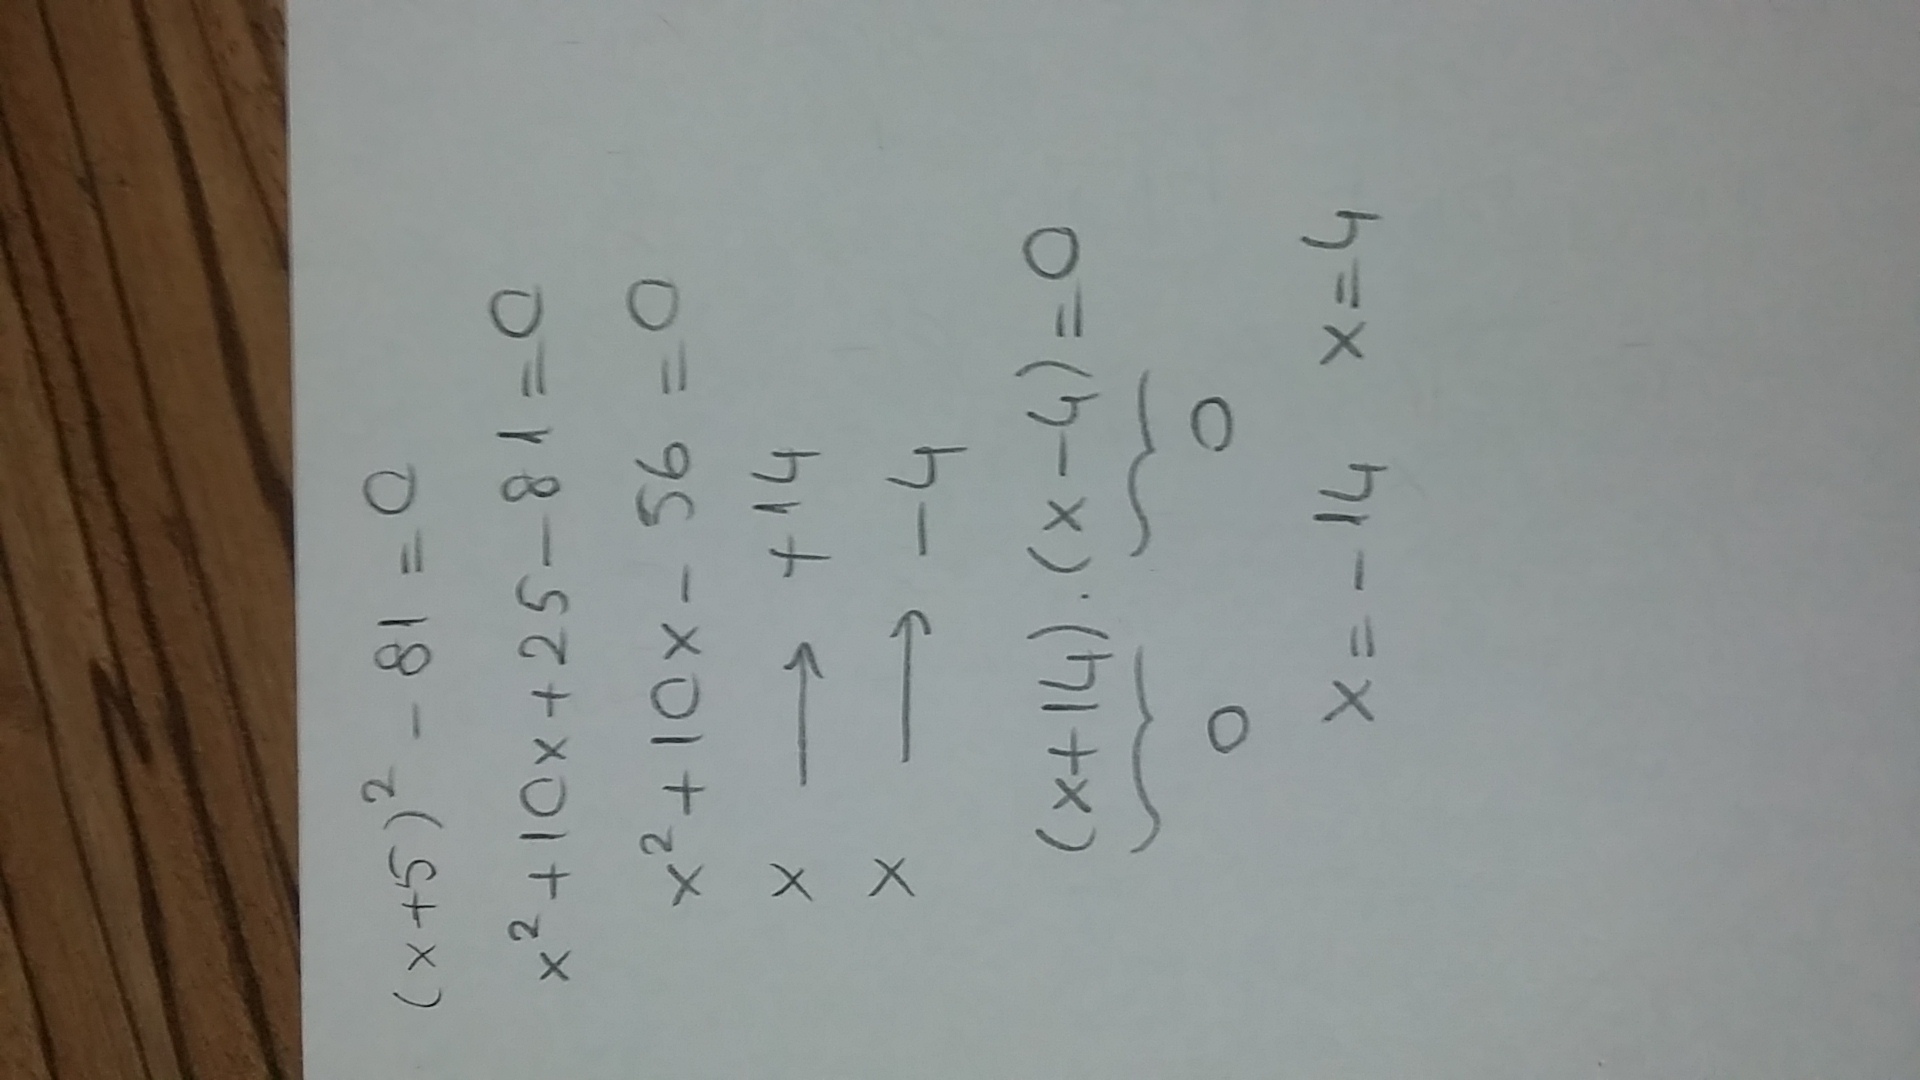 (x+5)² - 81 = 0
x² + 10x + 25 - 81 = 0
x² + 10x - 56 = 0
x → +14
x → -4
(x+14).(x-4) = 0
0 0
x = -14 x = 4